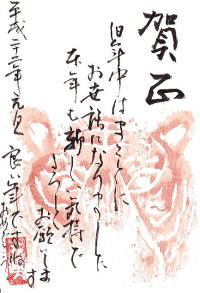 賀正
旧年中はまことに
お世話になりました
本年も新しい気持で
よろしく
お願いします
平成二十二年元旦
良い年でありますね